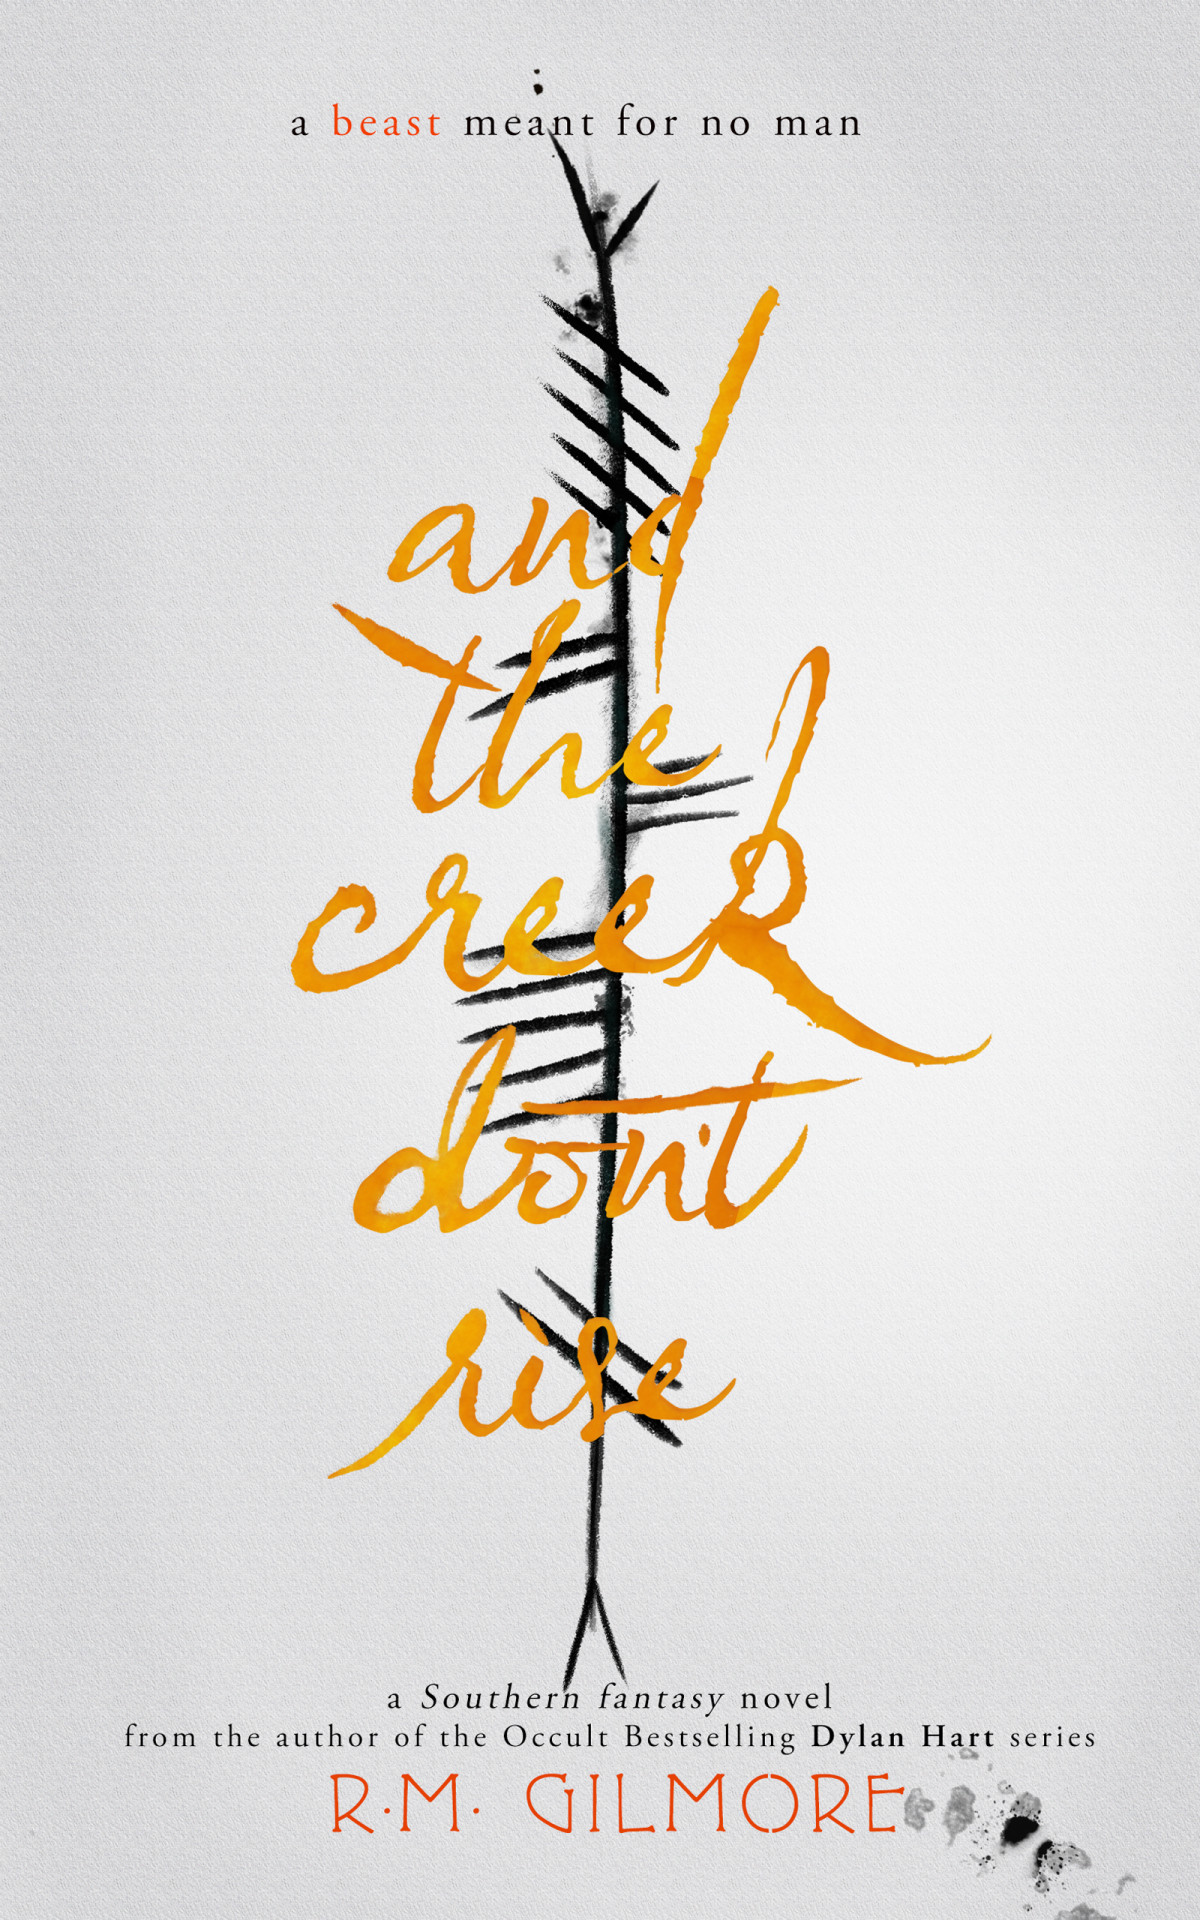 a beast meant for no man
and
the
creek
don't
rise
a Southern fantasy novel
from the author of the Occult Bestselling Dylan Hart series
R.M. GILMORE